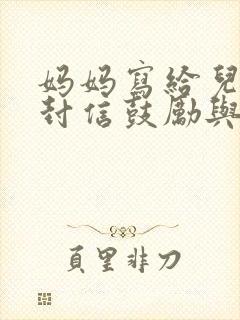 妈妈寫給兒
封信鼓勵與
頁里非刀